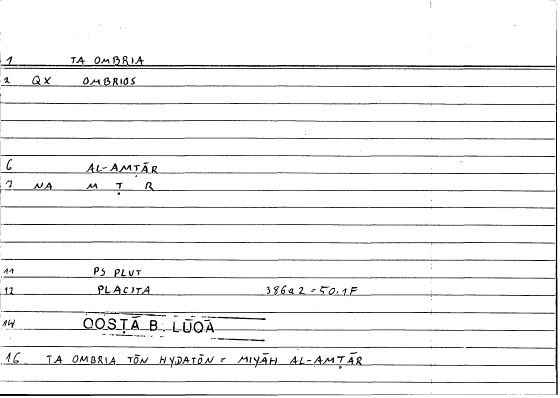 1 TA OMBRIA
2 QX OMBRIOS
6 AL-AMṬĀR
7 NA M Ṭ R
11 PS PLUT
12 PLACITA 386a2=50.1F
14 QOSṬĀ B. LŪQĀ
16 TA OMBRIA TŌN HYDATŌN = MIYĀH AL-AMṬĀR